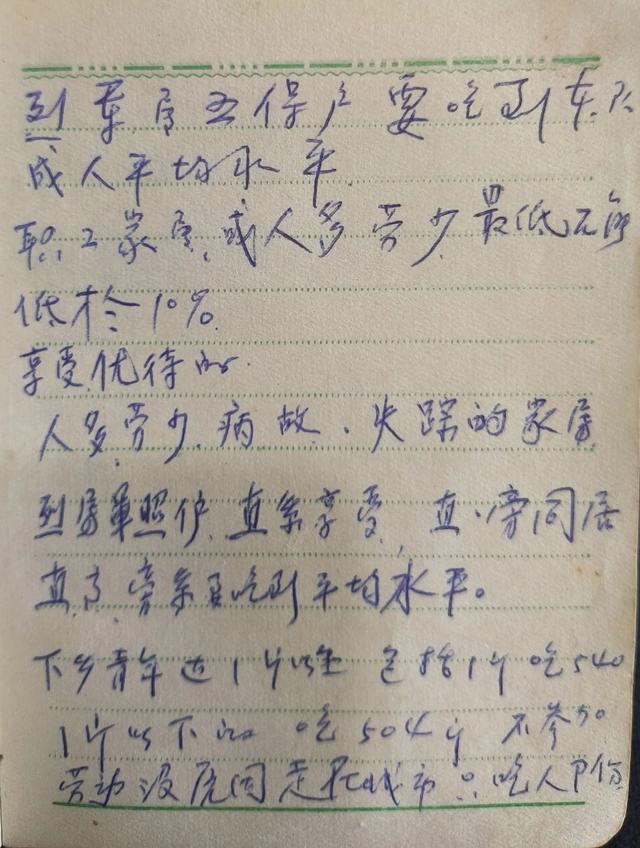 烈军属五保户要吃到本队
成人平均水平
职工家属,或人多劳少最低不能
低於10%
享受优待的
人多劳少.病故.失踪的家属
烈属单照护.直系享受,直.旁同居
直高,旁系吃到平均水平。
下乡青年达1年以 包括1年吃540
1年以下的 吃504斤 不参加
劳动没 走在城市只吃人口份